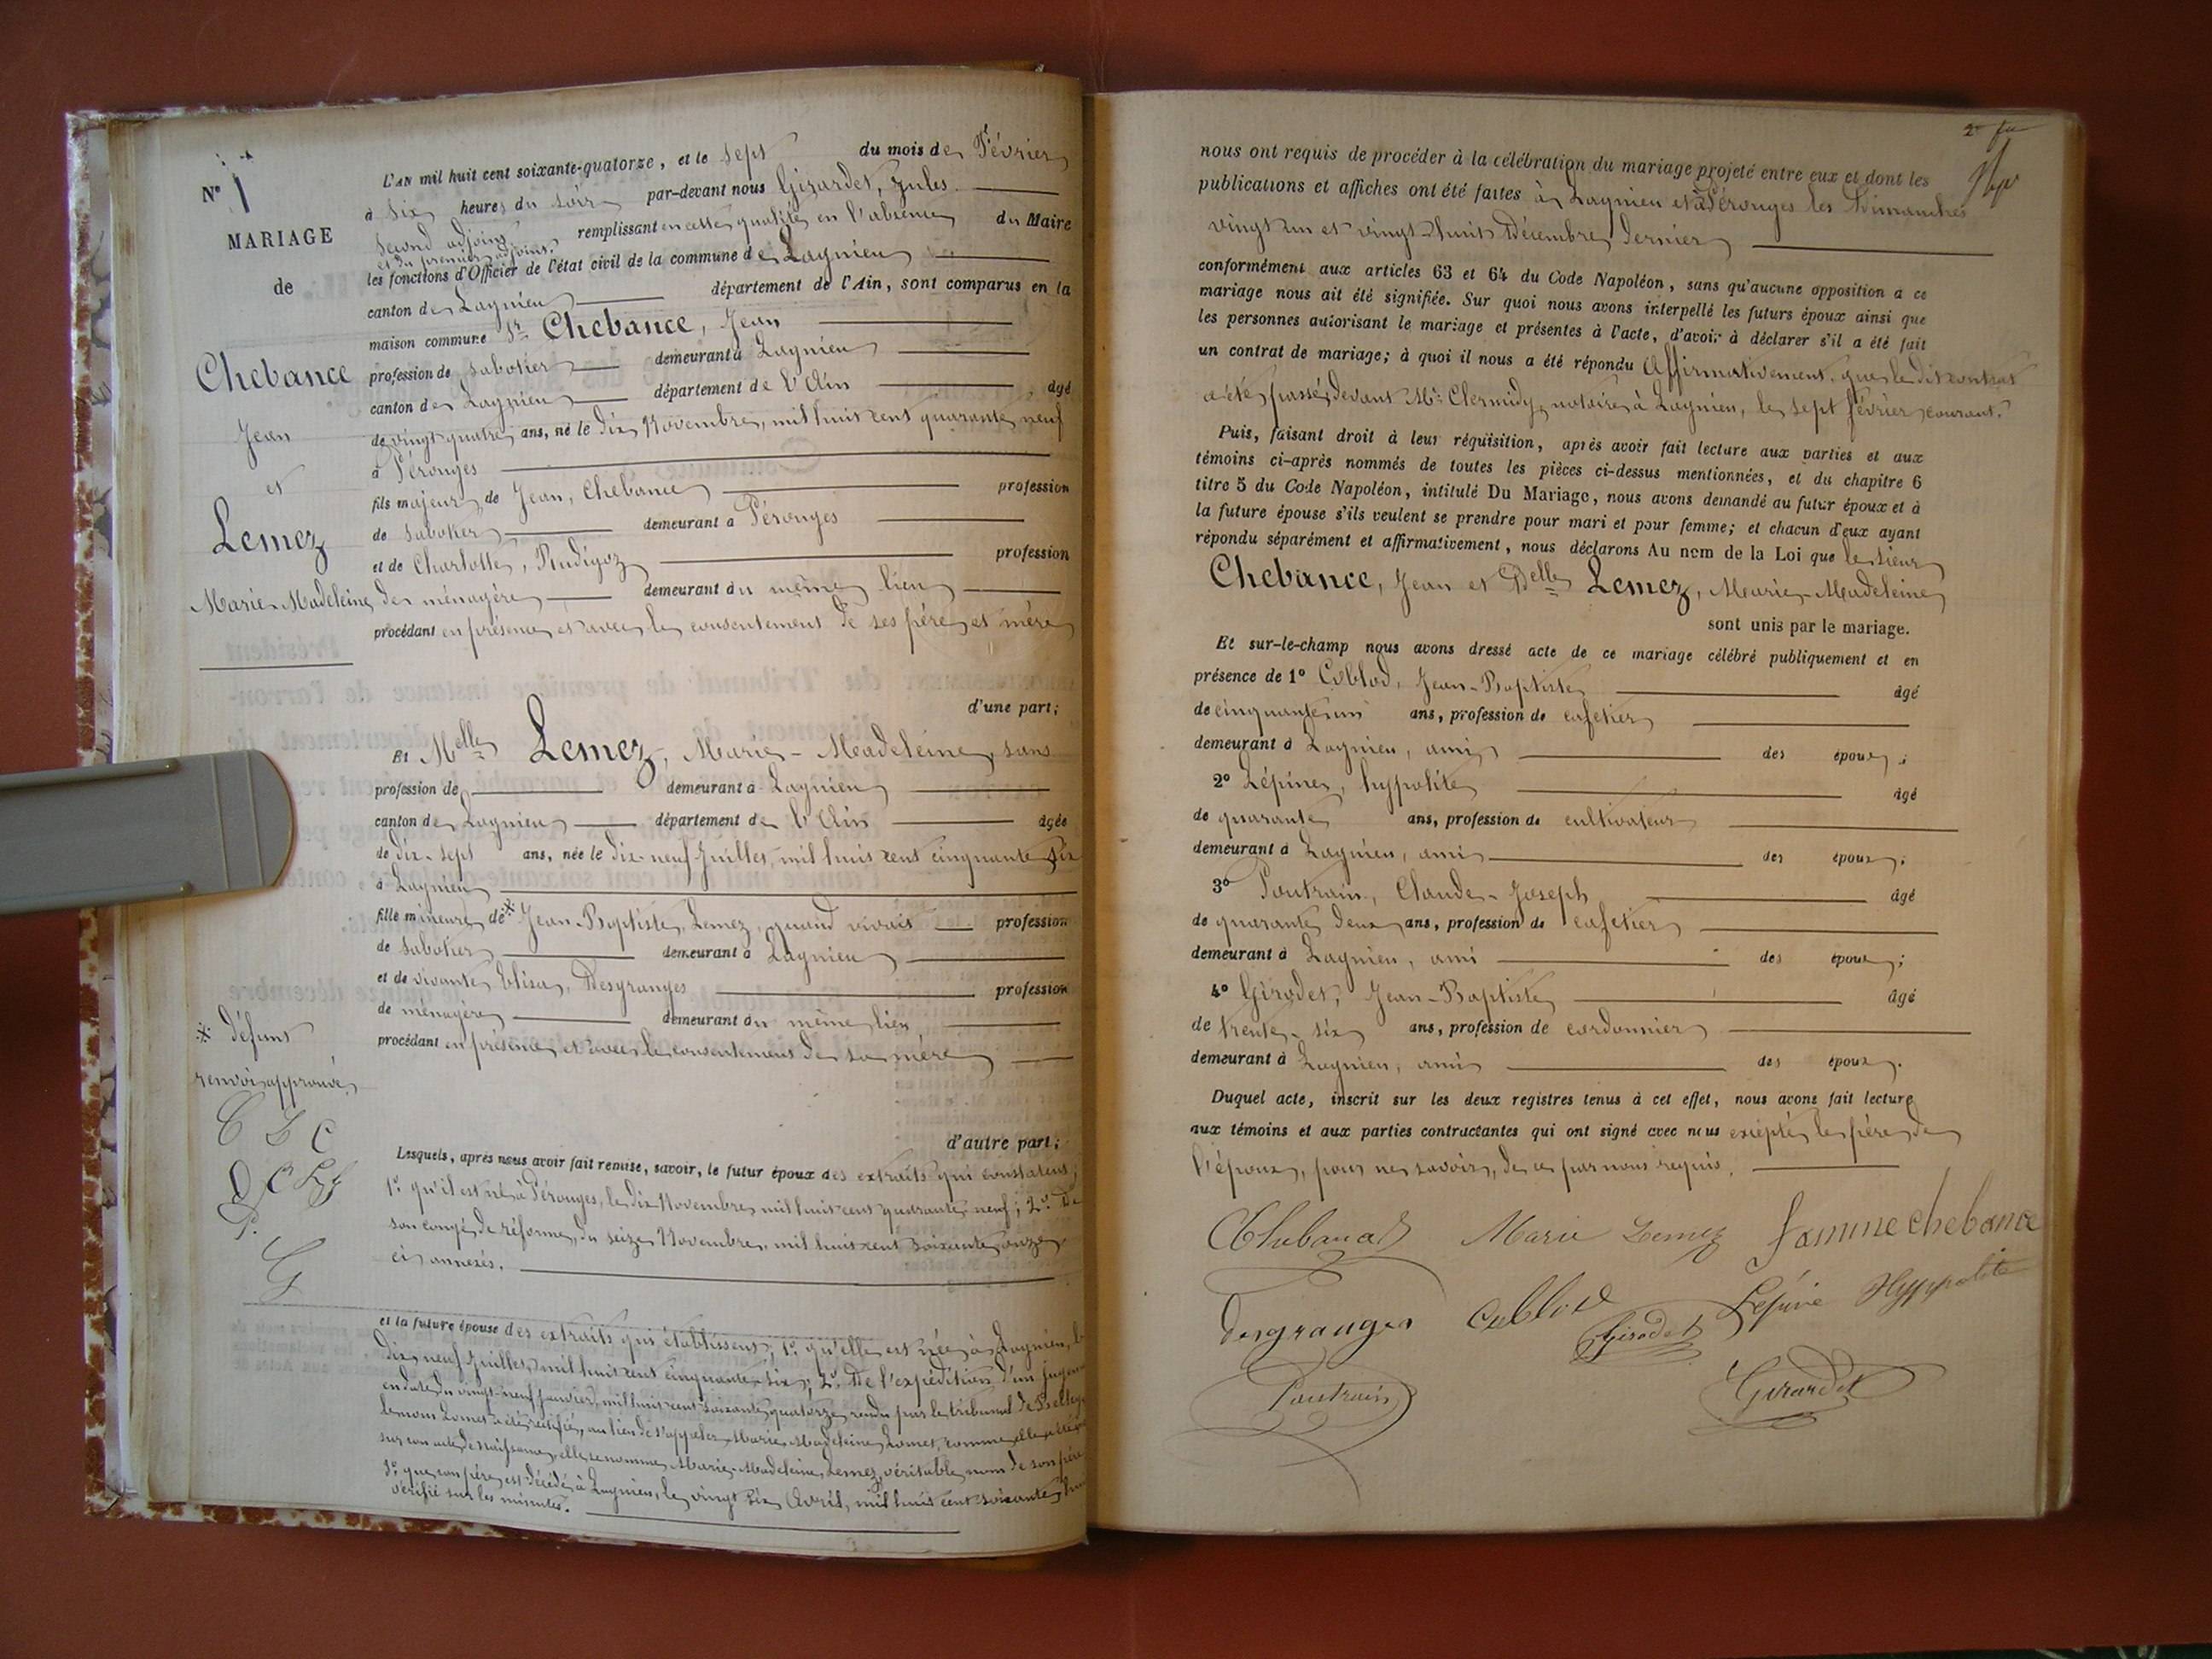 N° 1
MARIAGE
de
Chebance
Jean
et
Lemez
Marie-Madeleine
L'AN mil huit cent soixante-quatorze, et le sept du mois de Février
à six heures du soir par-devant nous Girardet, Jules
second adjoint remplissant en cette qualité en l'absence du Maire
et du premier adjoint
les fonctions d'Officier de l'état civil de la commune de Lagnieu
canton de Lagnieu département de l'Ain, sont comparus en la
maison commune Sr Chebance, Jean
profession de sabotier demeurant à Lagnieu
canton de Lagnieu département de l'Ain, âgé
de vingt quatre ans, né le dix Novembre, mil huit cent quarante neuf
à Pérouges
fils majeur de Jean, Chebance profession
de sabotier demeurant à Pérouges
et de Charlotte, Rudigoz profession
de ménagère demeurant du même lieu
procédant en présence et avec le consentement de ses père et mère
d'une part;
Et Melle Lemez, Marie-Madeleine, sans
profession de demeurant à Lagnieu
canton de Lagnieu département de l'Ain âgée
de dix-sept ans, née le dix-neuf Juillet, mil huit cent cinquante six
à Lagnieu
fille mineure de * Jean-Baptiste, Lemez, quand vivait profession
de sabotier demeurant à Lagnieu
et de vivante Eliza, Desgranges profession
de ménagère demeurant du même lieu
procédant en présence et avec le consentement de sa mère
* défunt
renvoi approuvé
d'autre part;
Lesquels, après nous avoir fait remise, savoir, le futur époux des extraits qui constatent;
1° qu'il est né à Pérouges, le dix Novembre mil huit cent quarante neuf; 2° De
son congé de réforme, du seize Novembre, mil huit cent soixante onze
ci annexés.
et la future épouse des extraits qui établissent; 1° qu'elle est née à Lagnieu, le
dix neuf Juillet, mil huit cent cinquante six; 2° De l'expédition d'un
en date du vingt-neuf Janvier, mil huit cent soixante quatorze rendu par le tribunal de
le nom Lomet a été rectifié, au lieu de s'appeler Marie Madeleine Lomet, comme elle
sur son acte de naissance, elle se nomme Marie-Madeleine, Lemez, véritable nom de son père
3° que son père est décédé à Lagnieu, le vingt six Avril, mil huit cent soixante
vérifié sur les minutes.
nous ont requis de procéder à la célébration du mariage projeté entre eux et dont les
publications et affiches ont été faites à Lagnieu et à Pérouges les Dimanches
vingt un et vingt-huit Décembre dernier
conformément aux articles 63 et 64 du Code Napoléon, sans qu'aucune opposition à ce
mariage nous ait été signifiée. Sur quoi nous avons interpellé les futurs époux ainsi que
les personnes autorisant le mariage et présentes à l'acte, d'avoir à déclarer s'il a été fait
un contrat de mariage; à quoi il nous a été répondu Affirmativement que le dit contrat
a été passé devant Me Clermidy, notaire à Lagnieu, le sept février courant.
Puis, faisant droit à leur réquisition, après avoir fait lecture aux parties et aux
témoins ci-après nommés de toutes les pièces ci-dessus mentionnées, et du chapitre 6
titre 5 du Code Napoléon, intitulé Du Mariage, nous avons demandé au futur époux et à
la future épouse s'ils veulent se prendre pour mari et pour femme; et chacun d'eux ayant
répondu séparément et affirmativement, nous déclarons Au nom de la Loi que le sieur
Chebance, Jean et Delle Lemez, Marie-Madeleine
sont unis par le mariage.
Et sur-le-champ nous avons dressé acte de ce mariage célébré publiquement et en
présence de 1° Cublod, Jean-Baptiste âgé
de cinquante un ans, profession de cafetier
demeurant à Lagnieu, ami des époux;
2° Lépine, hyppolite âgé
de quarante ans, profession de cultivateur
demeurant à Lagnieu, ami des époux;
3° Poutrain, Claude-Joseph âgé
de quarante deux ans, profession de cafetier
demeurant à Lagnieu, ami des époux;
4° Girodet, Jean-Baptiste âgé
de trente-six ans, profession de cordonnier
demeurant à Lagnieu, ami des époux.
Duquel acte, inscrit sur les deux registres tenus à cet effet, nous avons fait lecture
aux témoins et aux parties contractantes qui ont signé avec nous excepté le père de
l'époux, pour ne savoir, de ce par nous requis.
Marie Lemez famme chebance
desgranges Cublod Girodet Lépine Hyppolite
Poutrain Girardet